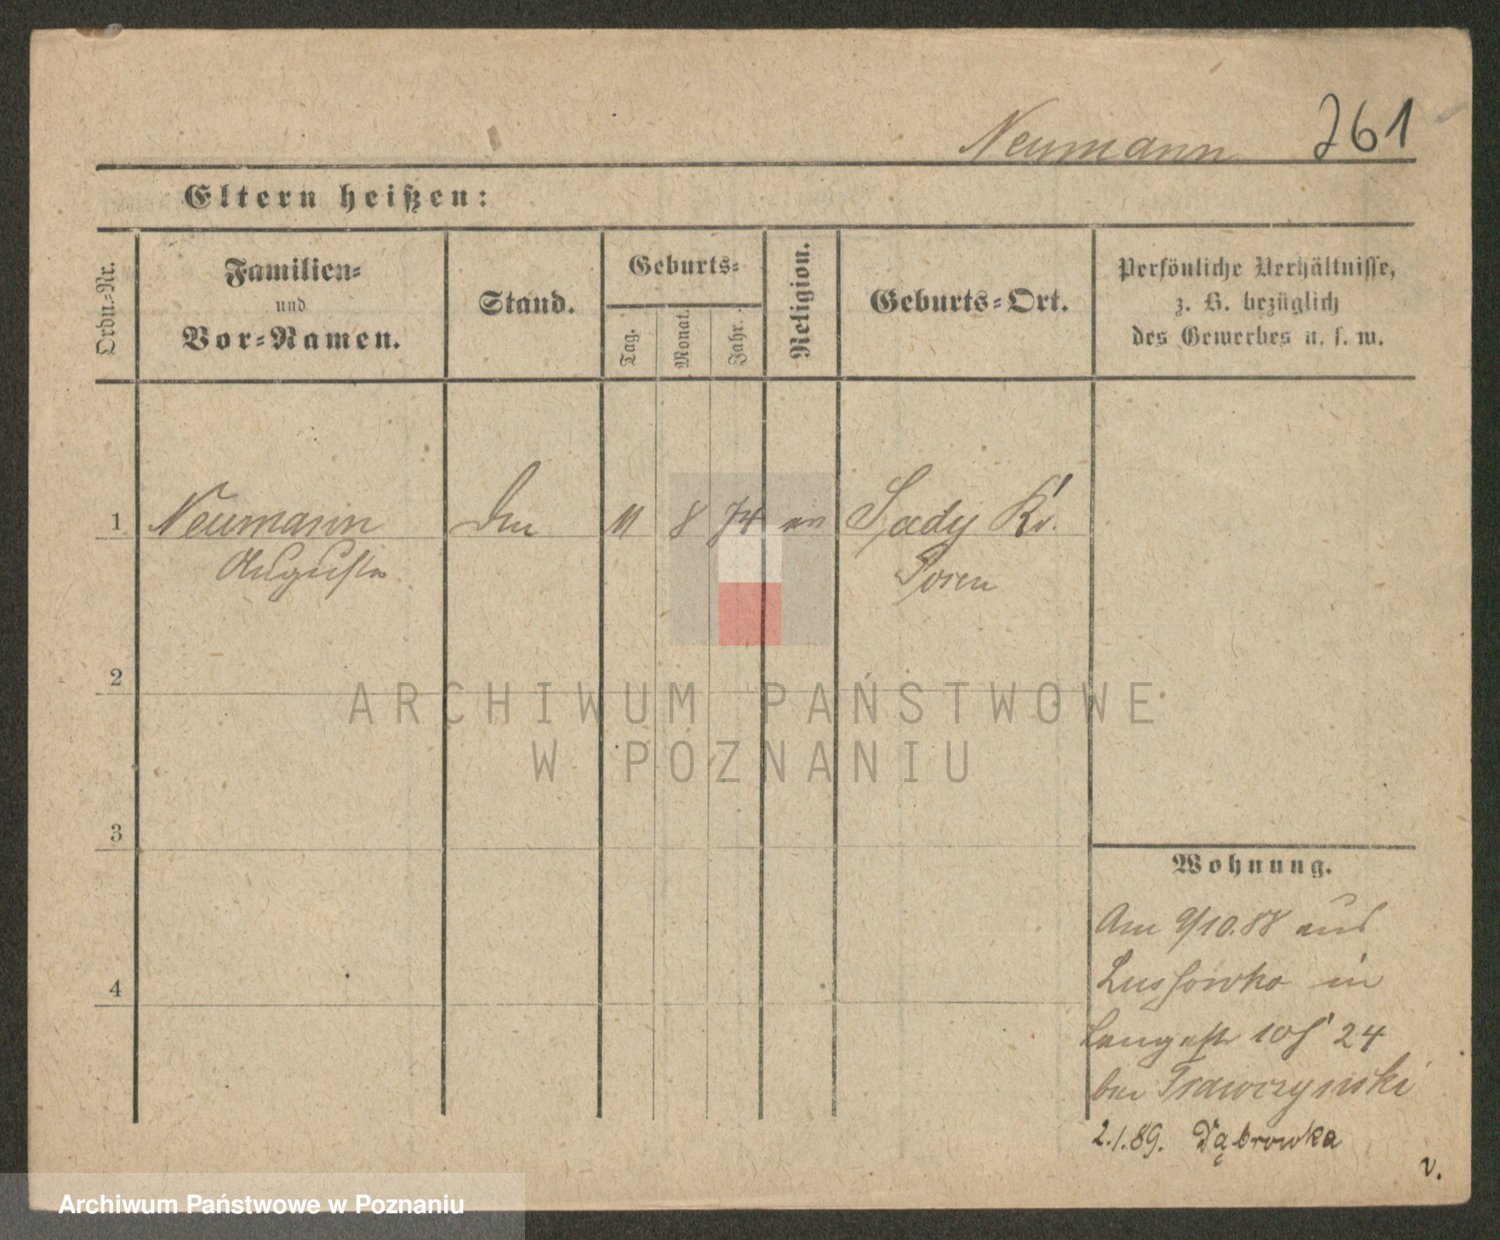 Neumann 761
Eltern heißen:
Ordn.-Nr.
Familien-
und
Vor-Namen.
Stand.
Geburts-
Tag.
Monat.
Jahr.
Religion.
Geburts-Ort.
Persönliche Verhältnisse,
z. B. bezüglich
des Gewerbes u. s. w.
1 Neumann 11 8 74 Sady Kr.
Auguste Posen
2
ARCHIWUM PAŃSTWOWE
W POZNANIU
3
Wohnung.
Am 9/10.88 aus
Lussowko in
Langestr 24
bei
4
2.1.89. Dąbrowka
v.
Archiwum Państwowe w Poznaniu